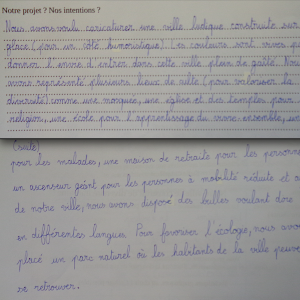 Notre projet ? Nos intentions ?
Nous avons voulu caricaturer une ville ludique construite sur
place (pour un côté humoristique). Les couleurs sont vives pour
donner l'envie d'entrer dans cette ville plein de gaité. Nous
avons représenté plusieurs lieux de culte (pour valoriser la
diversité) comme une mosquée, une église et des temples pour la
religion, une école pour l'apprentissage du vivre-ensemble, un
(suite)
pour les malades, une maison de retraite pour les personnes
un ascenseur géant pour les personnes à mobilité réduite et
de notre ville, nous avons disposé des bulles voulant dire
en différentes langues. Pour favoriser l'écologie, nous avons
placé un parc naturel où les habitants de la ville peuve
se retrouver.